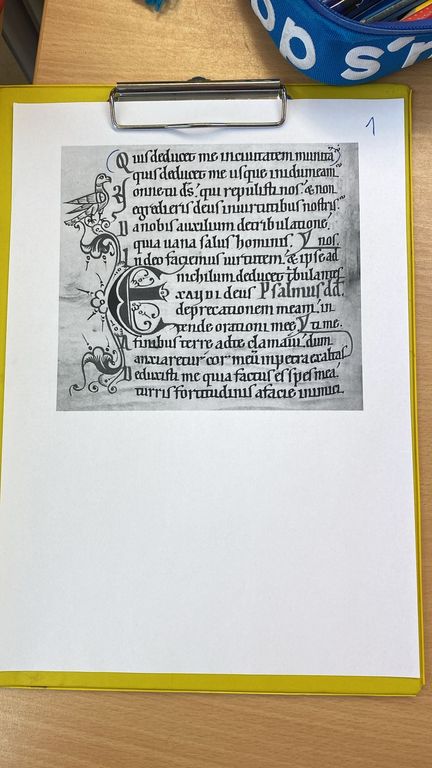 ops
1
Quis deducet me in ciuitatem munitā
quis deducet me usque in idumeam
onne tu ds̄, qui repulisti nos, & non
egredieris deus in uirtutibus nostris
Da nobis auxilium de tribulatione,
quia uana salus hominis. V nos.
In deo faciemus uirtutem, & ipse ad
nichilum deducet tbulantes
XAUDI deus Psalmus dd.
deprecationem meam, in
tende orationi mee V ti me.
A finibus terre ad te clamaui, dum
anxiaretur cor meū in petra exaltas
Deduxisti me quia factus es spes mea,
turris fortitudinis a facie inimici